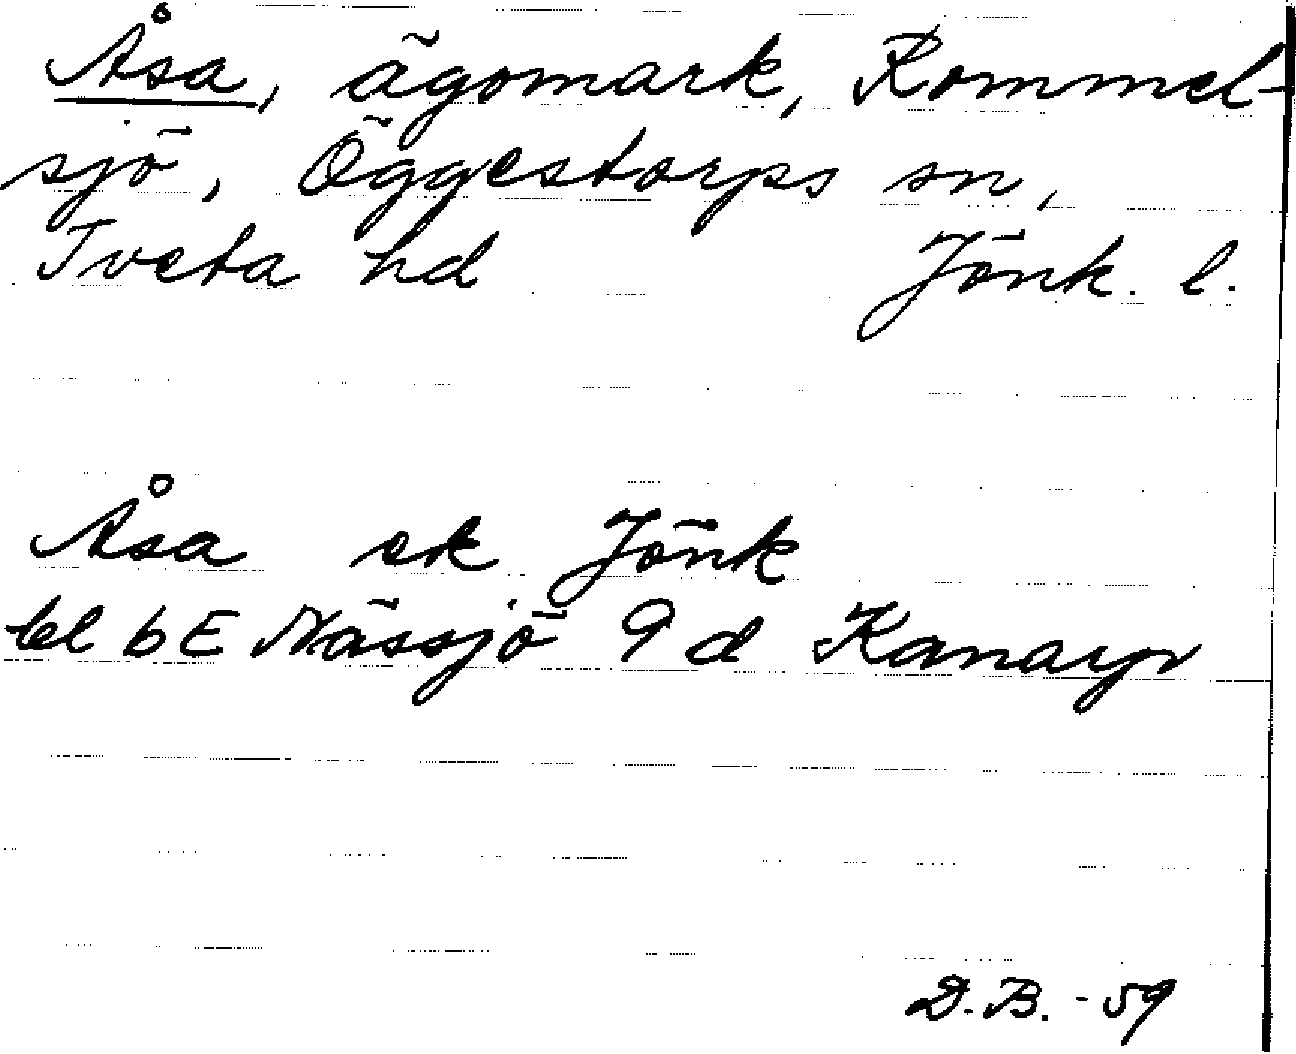 Åsa, ägomark, Rommel-
sjö, Öggestorps sn,
Tveta hd Jönk. l.
Åsa ek Jönk
bl 6E Nässjö 9d Kanarp
D.B. -59